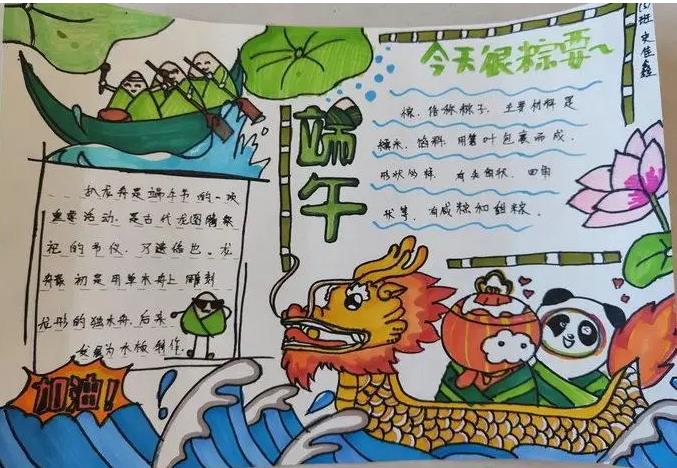 今天很粽要
端午
粽，俗称粽子，主要材料是
糯米、馅料，用箬叶包裹而成，
形状多样，有尖角状、四角
状等，有咸粽和甜粽。
扒龙舟是端午节的一项
重要活动，是古代龙图腾祭
祀的节仪，乃遗俗也。龙
舟最初是用单木舟上雕刻
龙形的独木舟，后来
发展为木板制作。
加油！